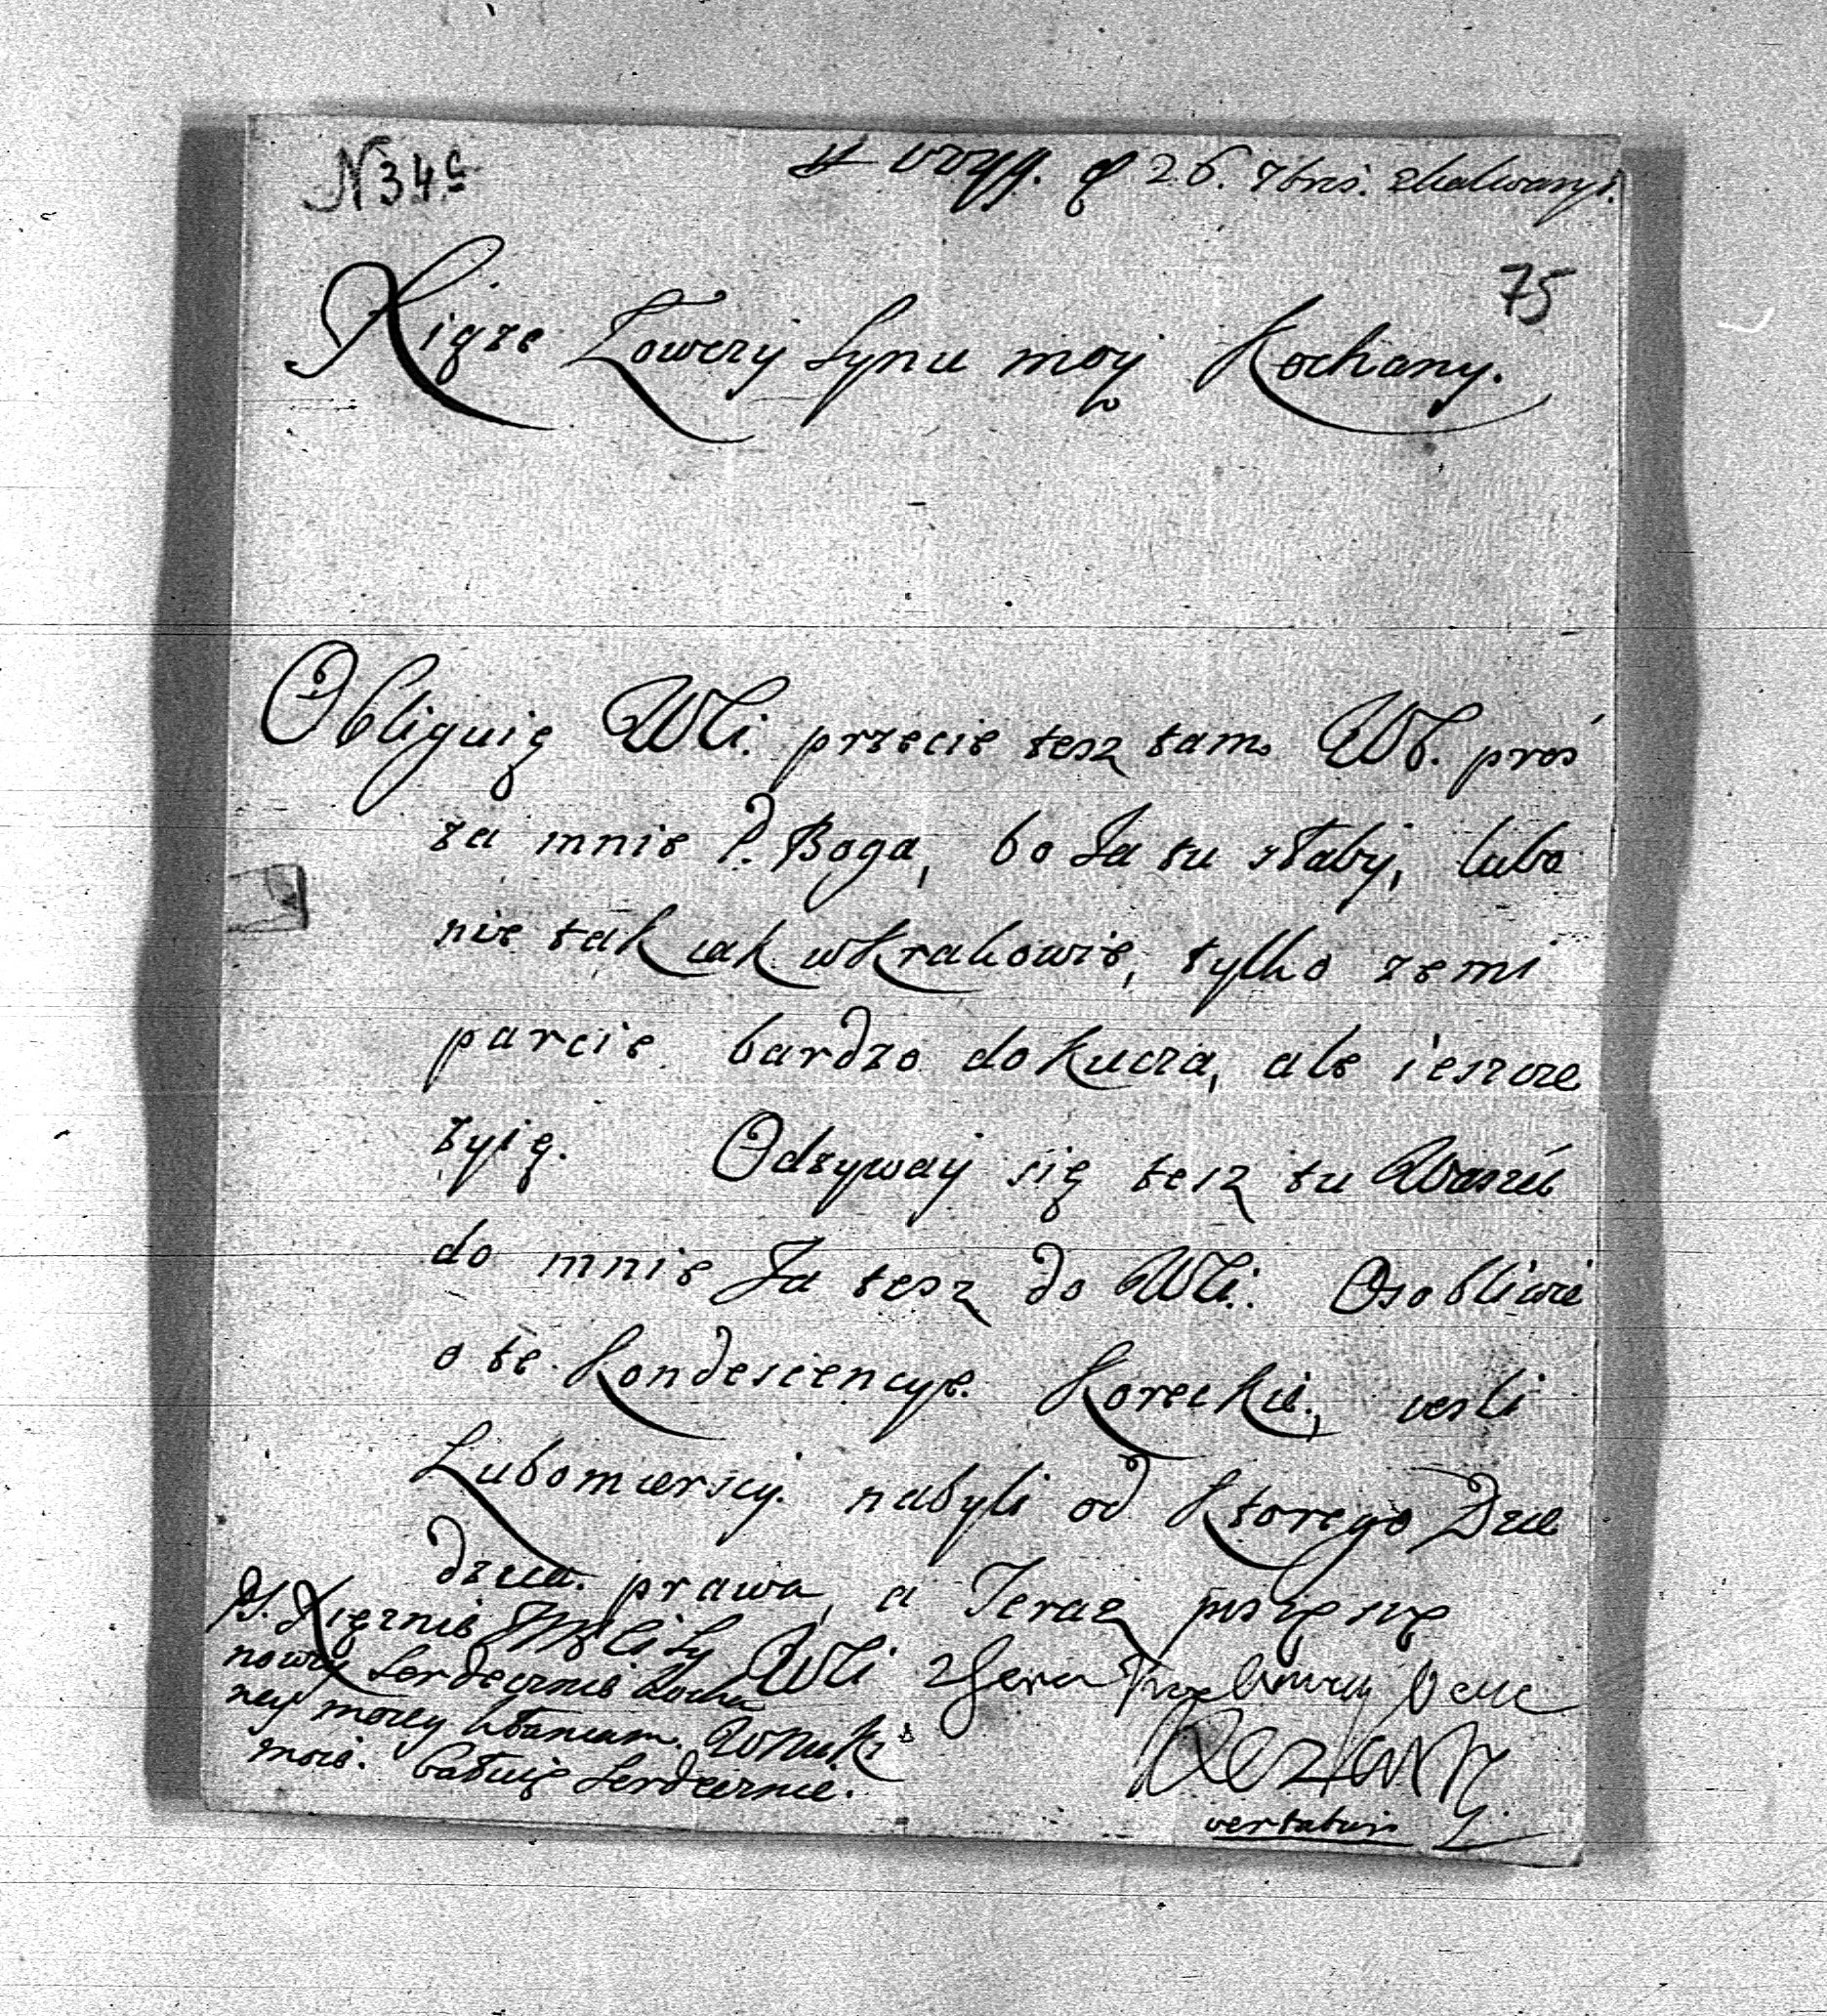 N 34
26. 7bris. zkalwaryi.
75
Xiąze Łowczy Synu moy Kochany.
Obliguię WLi. przecie tesz tam Wb. pros
za mnie P. Boga, bo Ja tu słaby, lubo
nie tak iak w Krakowie, tylko ze mi
parcie bardzo dokucza, ale ieszcze
zyię. Odzyway się tesz tu
do mnie Ja tesz do WLi. Osobliwie
o te Kondescencye Koreckie, iesli
Lubomierscy nabyli od Ktorego Dzie
dzica prawa, a Teraz piszę się
WLi
PS. Xięznie
nowey Serdecznie Kocha
ney moiey kłaniam. Wnuki
moie. Całuię Serdecznie.
vertatur